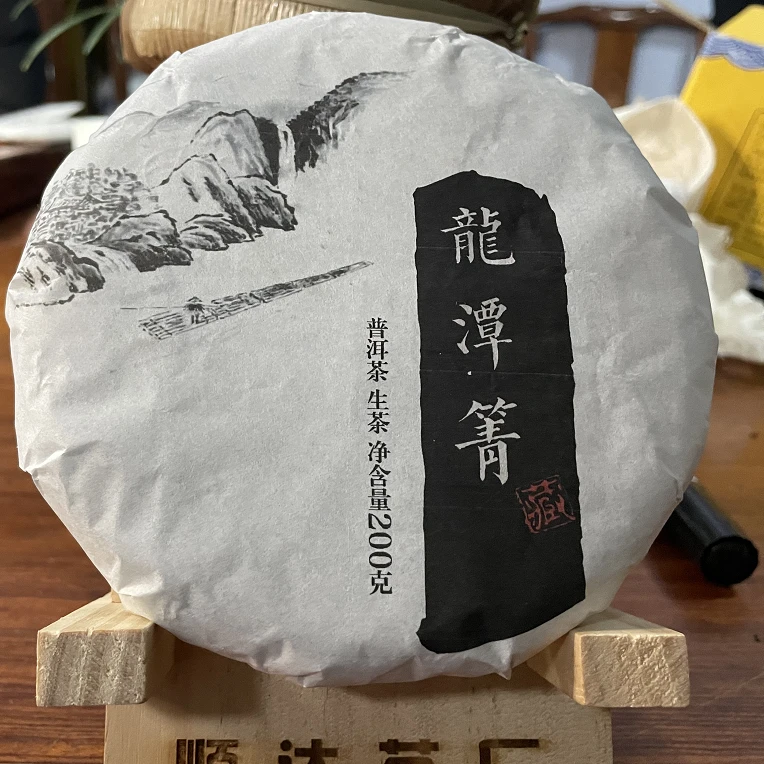 龍潭箐
藏
普洱茶 生茶 净含量200克
顺达茶厂